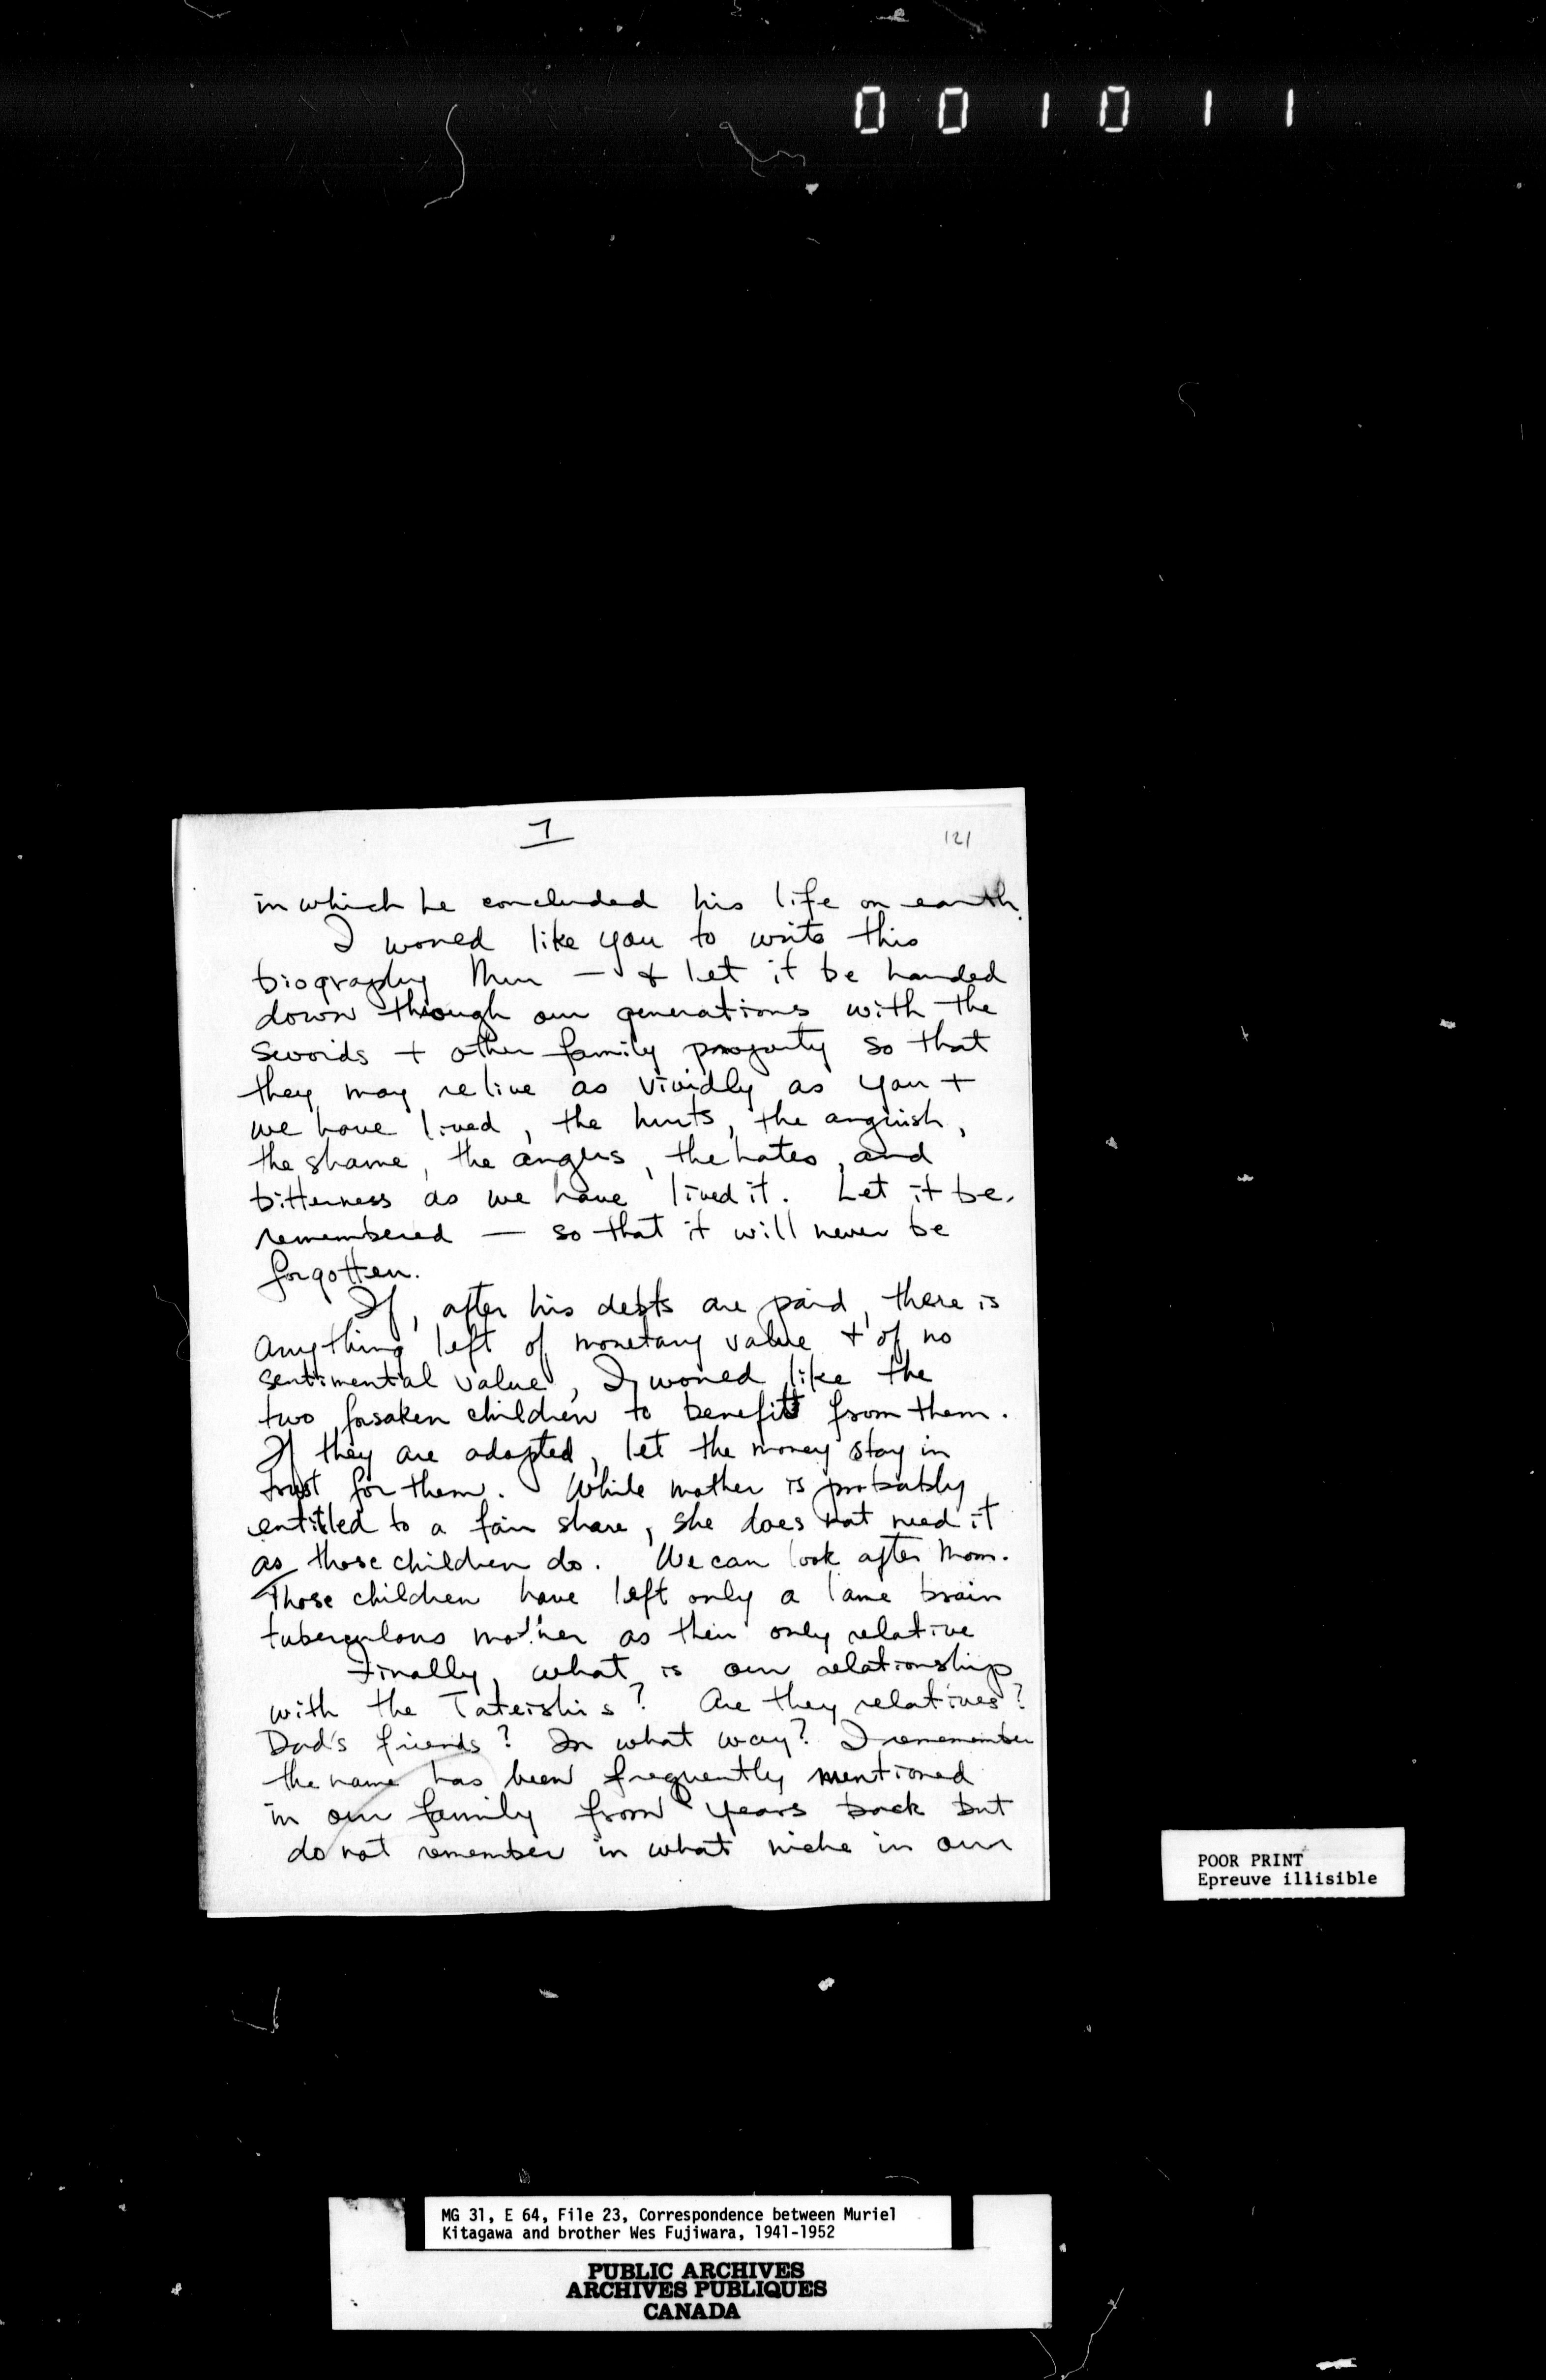 001011
7
121
in which he concluded his life on earth.
I would like you to write this
biography Mur — & let it be handed
down through our generations with the
swords + other family property so that
they may relive as vividly as you +
we have lived, the hurts, the anguish,
the shame, the angers, the hates, and
bitterness as we have lived it. Let it be
remembered — so that it will never be
forgotten.
If, after his debts are paid, there is
anything left of monetary value + of no
sentimental value, I would like the
two forsaken children to benefit from them.
If they are adopted, let the money stay in
trust for them. While mother is probably
entitled to a fair share, she does not need it
as those children do. We can look after Mom.
Those children have left only a lame brain
tuberculous mother as their only relative
Finally, what is our relationship
with the Tateishis? Are they relatives?
Dad's friends? In what way? I rememember
the name has been frequently mentioned
in our family from years back but
do not remember in what niche in our
POOR PRINT
Epreuve illisible
MG 31, E 64, File 23, Correspondence between Muriel
Kitagawa and brother Wes Fujiwara, 1941-1952
PUBLIC ARCHIVES
ARCHIVES PUBLIQUES
CANADA